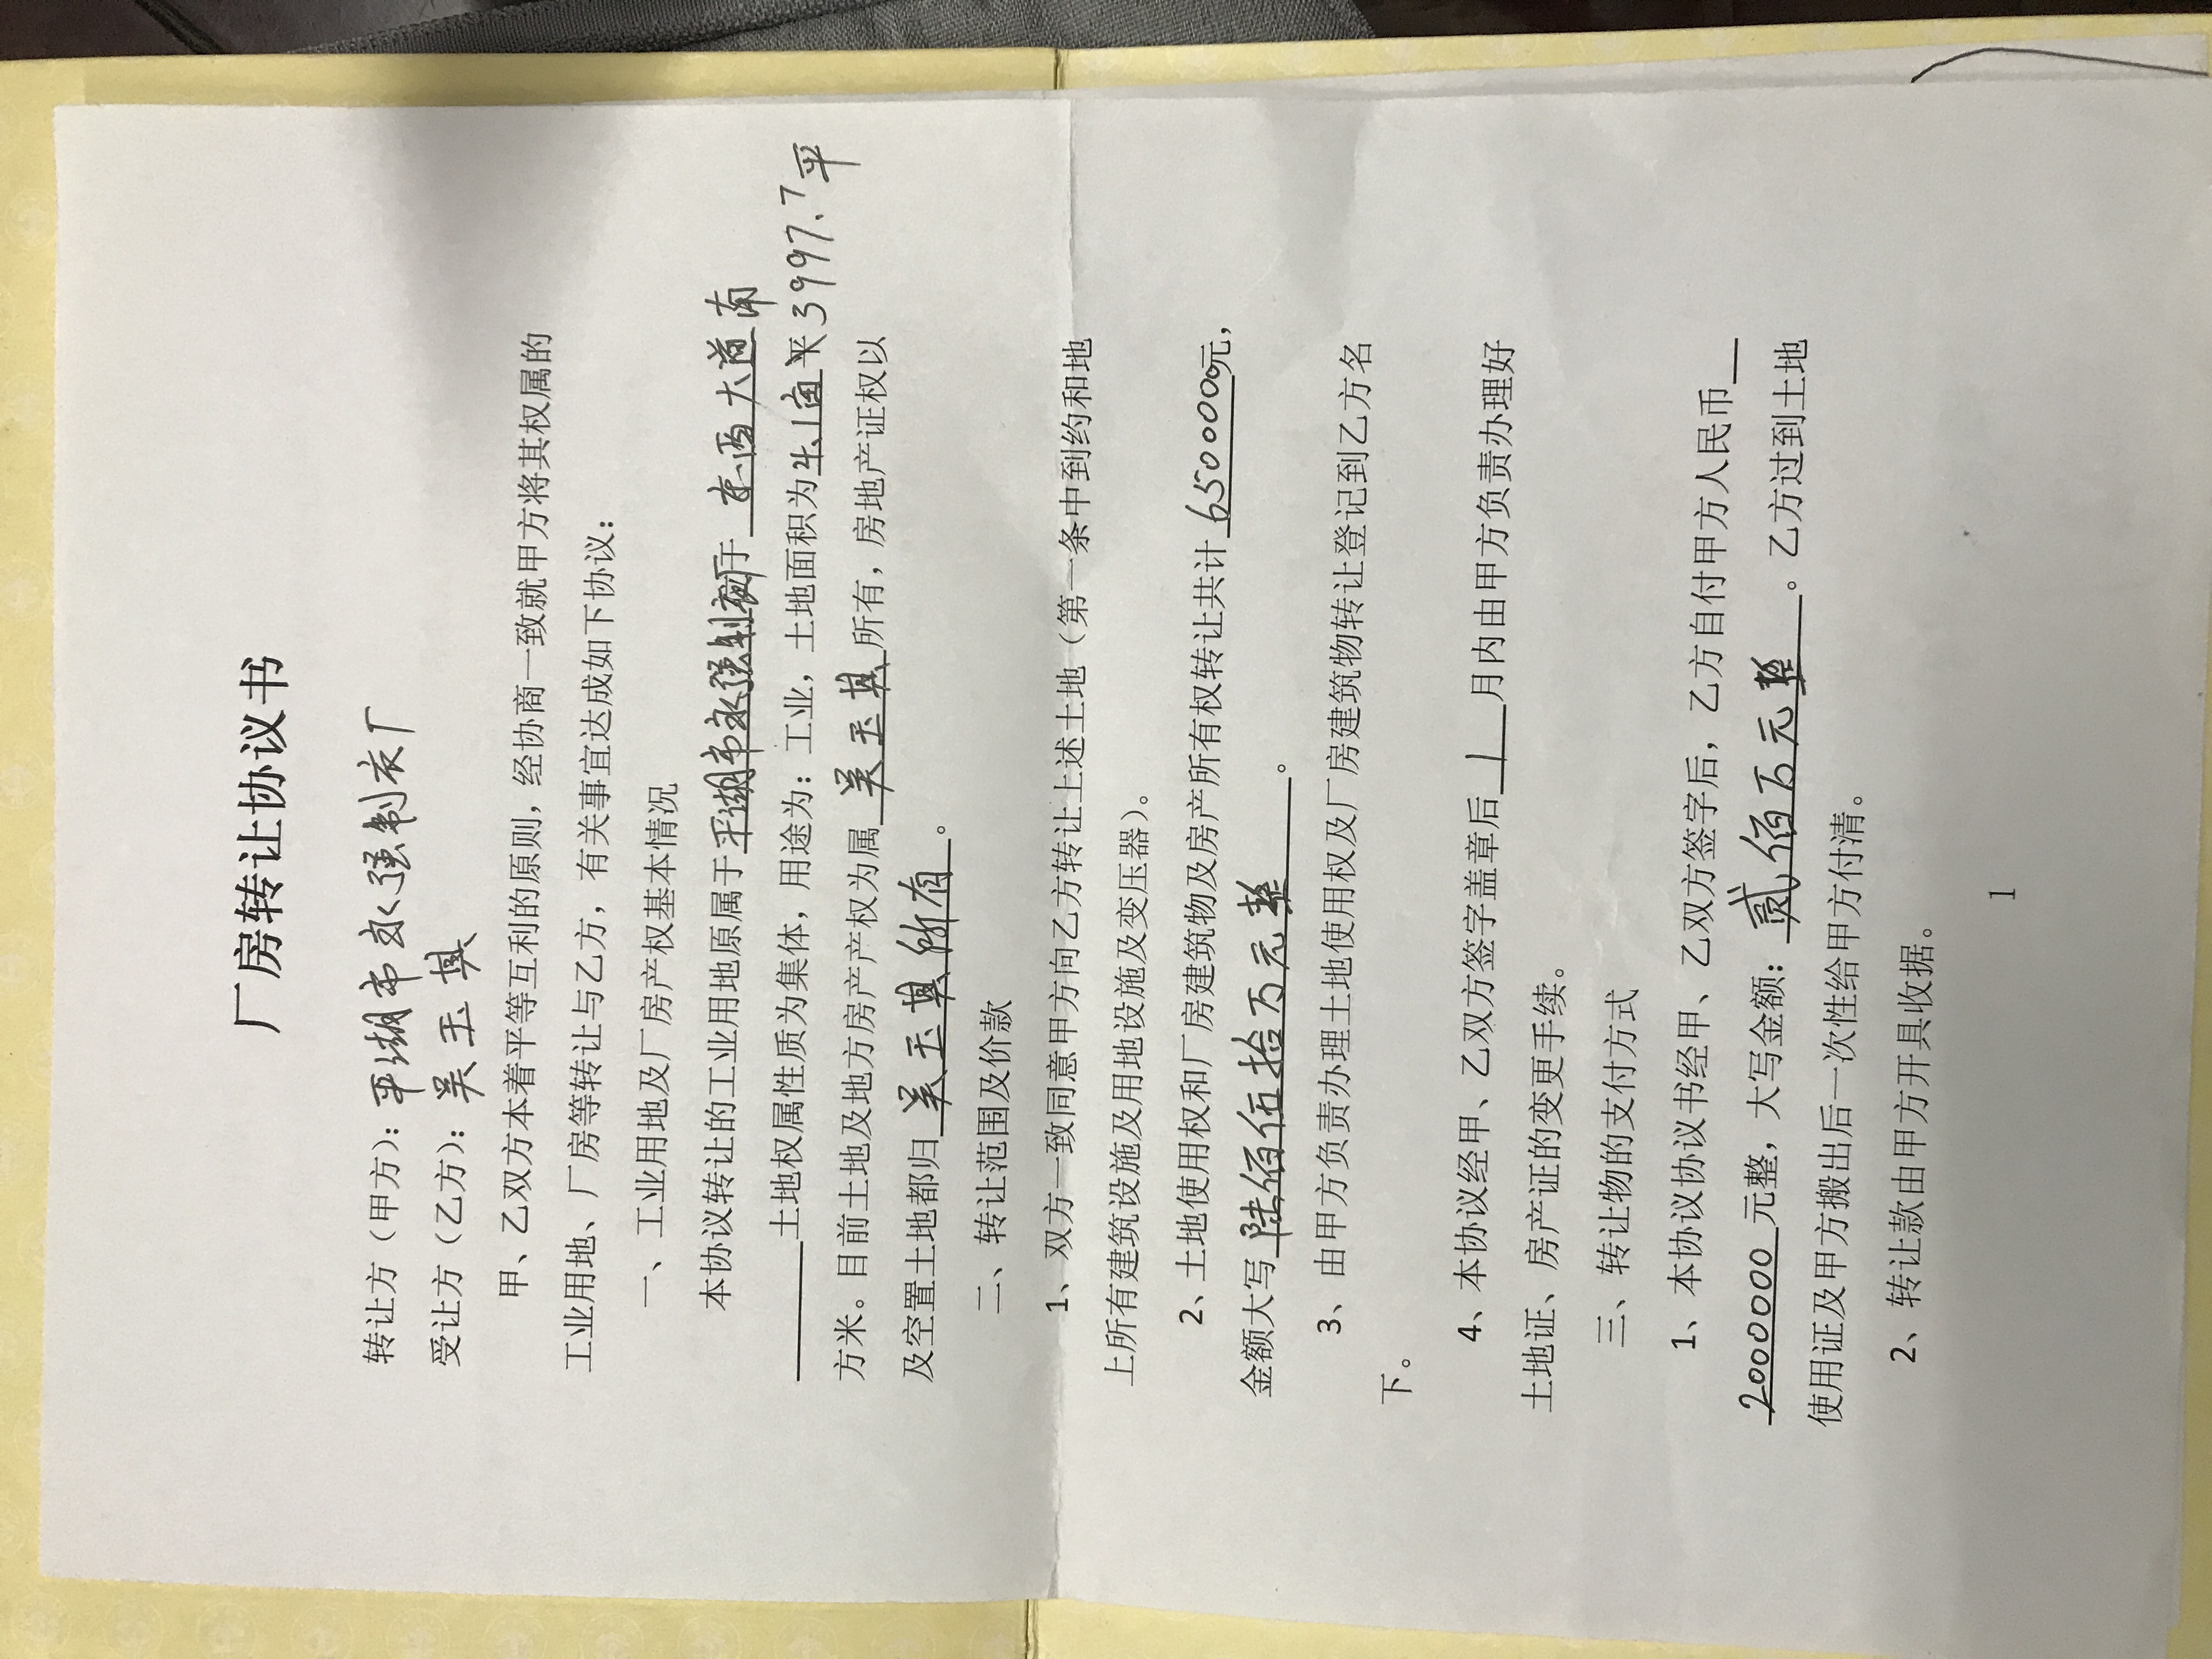 厂房转让协议书
转让方（甲方）：平湖市永强制衣厂
受让方（乙方）：吴玉其
甲、乙双方本着平等互利的原则，经协商一致就甲方将其权属的
工业用地、厂房等转让与乙方，有关事宜达成如下协议：
一、工业用地及厂房产权基本情况
本协议转让的工业用地原属于平湖市永强制衣厂于 东西大道南
土地权属性质为集体，用途为：工业，土地面积为 3997.7平
方米。目前土地及地方房产产权为属 吴玉其 所有，房地产证权以
及空置土地都归 吴玉其所有 。
二、转让范围及价款
1、双方一致同意甲方向乙方转让上述土地（第一条中到约和地
上所有建筑设施及用地设施及变压器）。
2、土地使用权和厂房建筑物及房产所有权转让共计 6500000元，
金额大写 陆佰伍拾万元整 。
3、由甲方负责办理土地使用权及厂房建筑物转让登记到乙方名
下。
4、本协议经甲、乙双方签字盖章后 1 月内由甲方负责办理好
土地证、房产证的变更手续。
三、转让物的支付方式
1、本协议协议书经甲、乙双方签字后，乙方自付甲方人民币
2000000 元整，大写金额：贰佰万元整 。乙方过到土地
使用证及甲方搬出后一次性给甲方付清。
2、转让款由甲方开具收据。
1